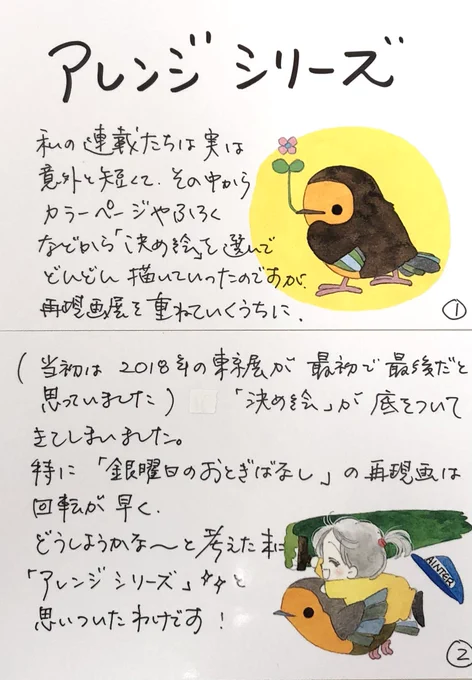 アレンジシリーズ
私の連載たちは実は
意外と短くて、その中から
カラーページやふろく
などから「決め絵」を選んで
どんどん描いていったのですが、
再現画展を重ねていくうちに、
①
(当初は2018年の東京展が最初で最後だと
思っていました) 「決め絵」が底をついて
きてしまいました。
特に「銀曜日のおとぎばなし」の再現画は
回転が早く、
どうしようかな〜と考えた末に
「アレンジシリーズ」と
思いついたわけです!
AINTER
②